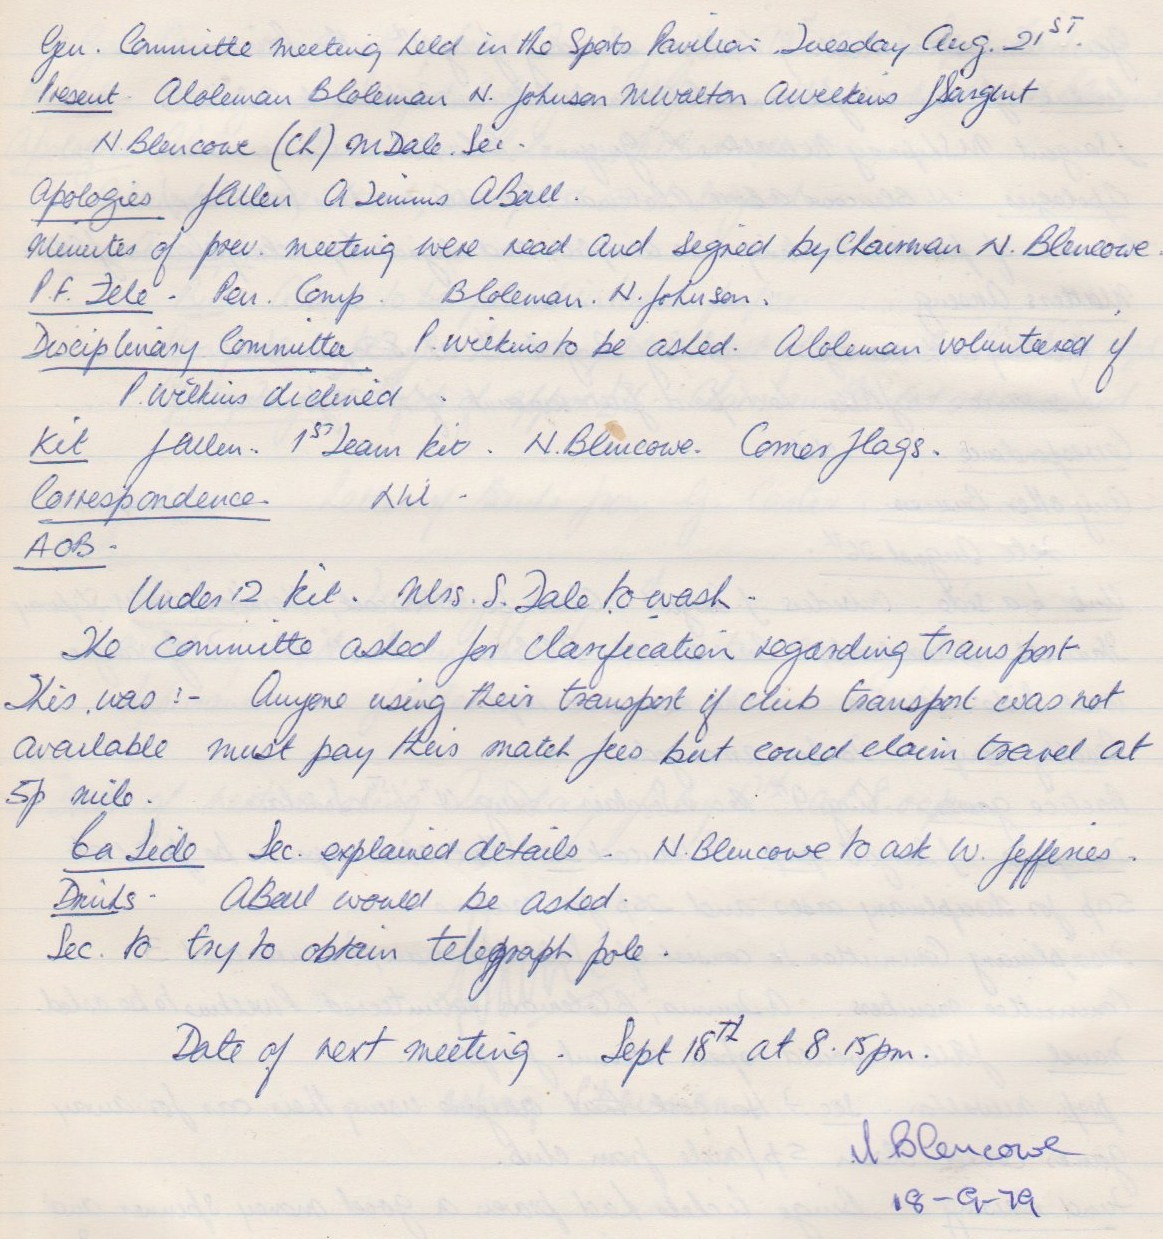 Gen. Committe meeting held in the Sports Pavilion Tuesday Aug. 21ST.
Present - A Coleman B Coleman N. Johnson M Walton A Wilkins J Sargent
N. Blencowe (Ch) M Dale. Sec.
Apologies J Allen A Timms A Ball.
Minutes of prev. meeting were read and signed by Chairman N. Blencowe.
P.F. Fete - Pen. Comp. B Coleman. N. Johnson.
Disciplinary Committee P. Wilkins to be asked. A Coleman volunteered if
P. Wilkins declined.
Kit J Allen. 1ST Team kit. N. Blencowe. Corner flags.
Correspondence. Nil -
AOB -
Under 12 kit. Mrs. S. Tale to wash -
The committe asked for clarification regarding transport
This was :- Anyone using their transport if club transport was not
available must pay their match fees but could claim travel at
5p mile.
6 a Side Sec. explained details - N. Blencowe to ask W. Jefferies.
Drinks - A Ball would be asked.
Sec. to try to obtain telegraph pole.
Date of next meeting - Sept 18TH at 8.15pm.
N Blencowe
18-9-79